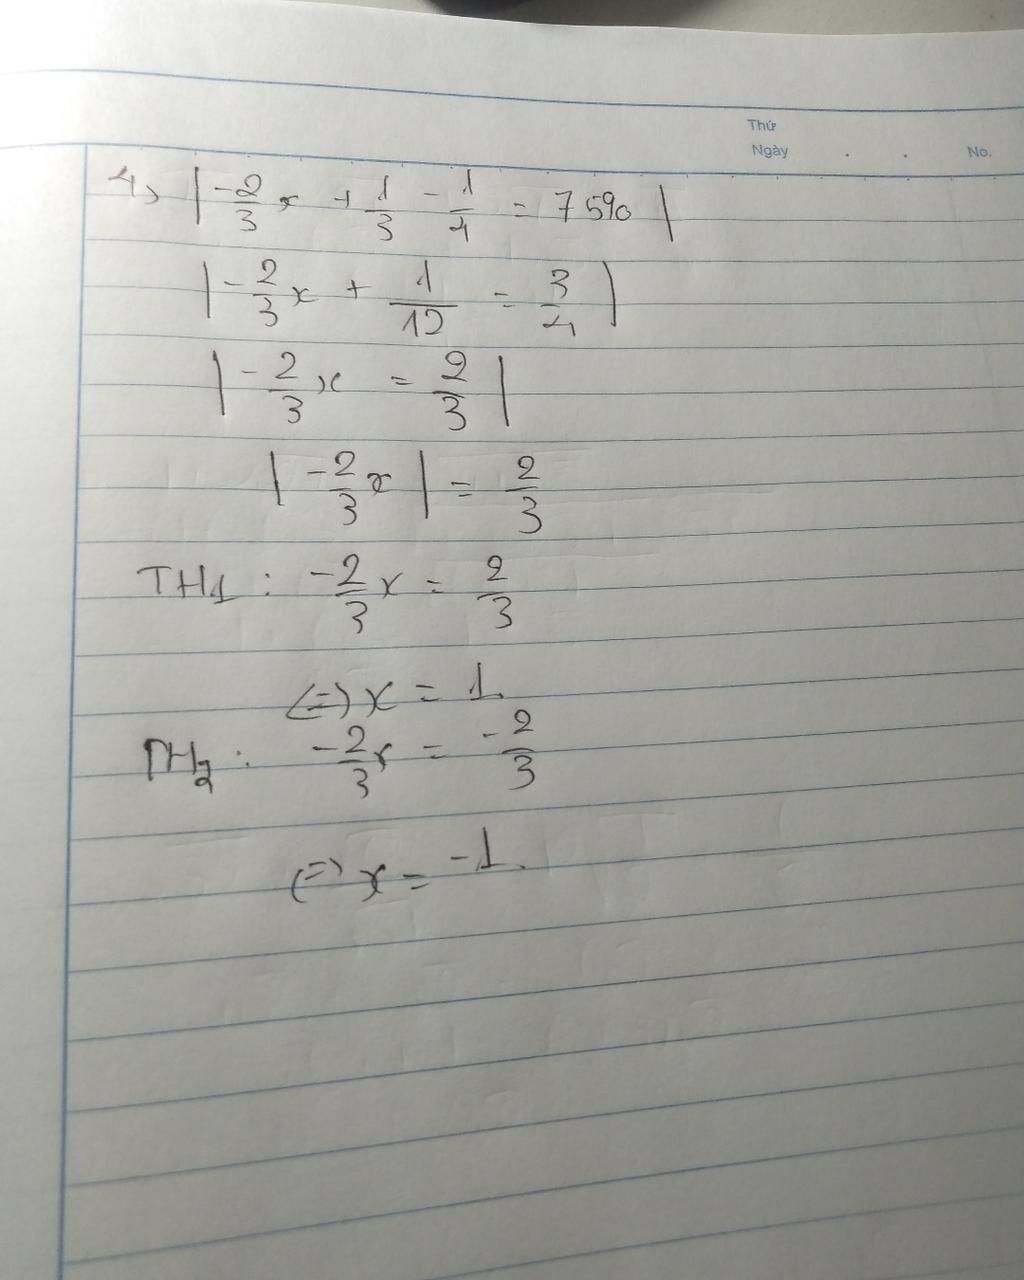 Thứ
Ngày . . No.
4, | -2/3 x + 1/3 - 1/4 = 75% |
| -2/3 x + 1/12 = 3/4 |
| -2/3 x = 2/3 |
| -2/3 x | = 2/3
TH1 : -2/3 x = 2/3
(=) x = 1.
TH2 : -2/3 x = -2/3
(=) x = -1.